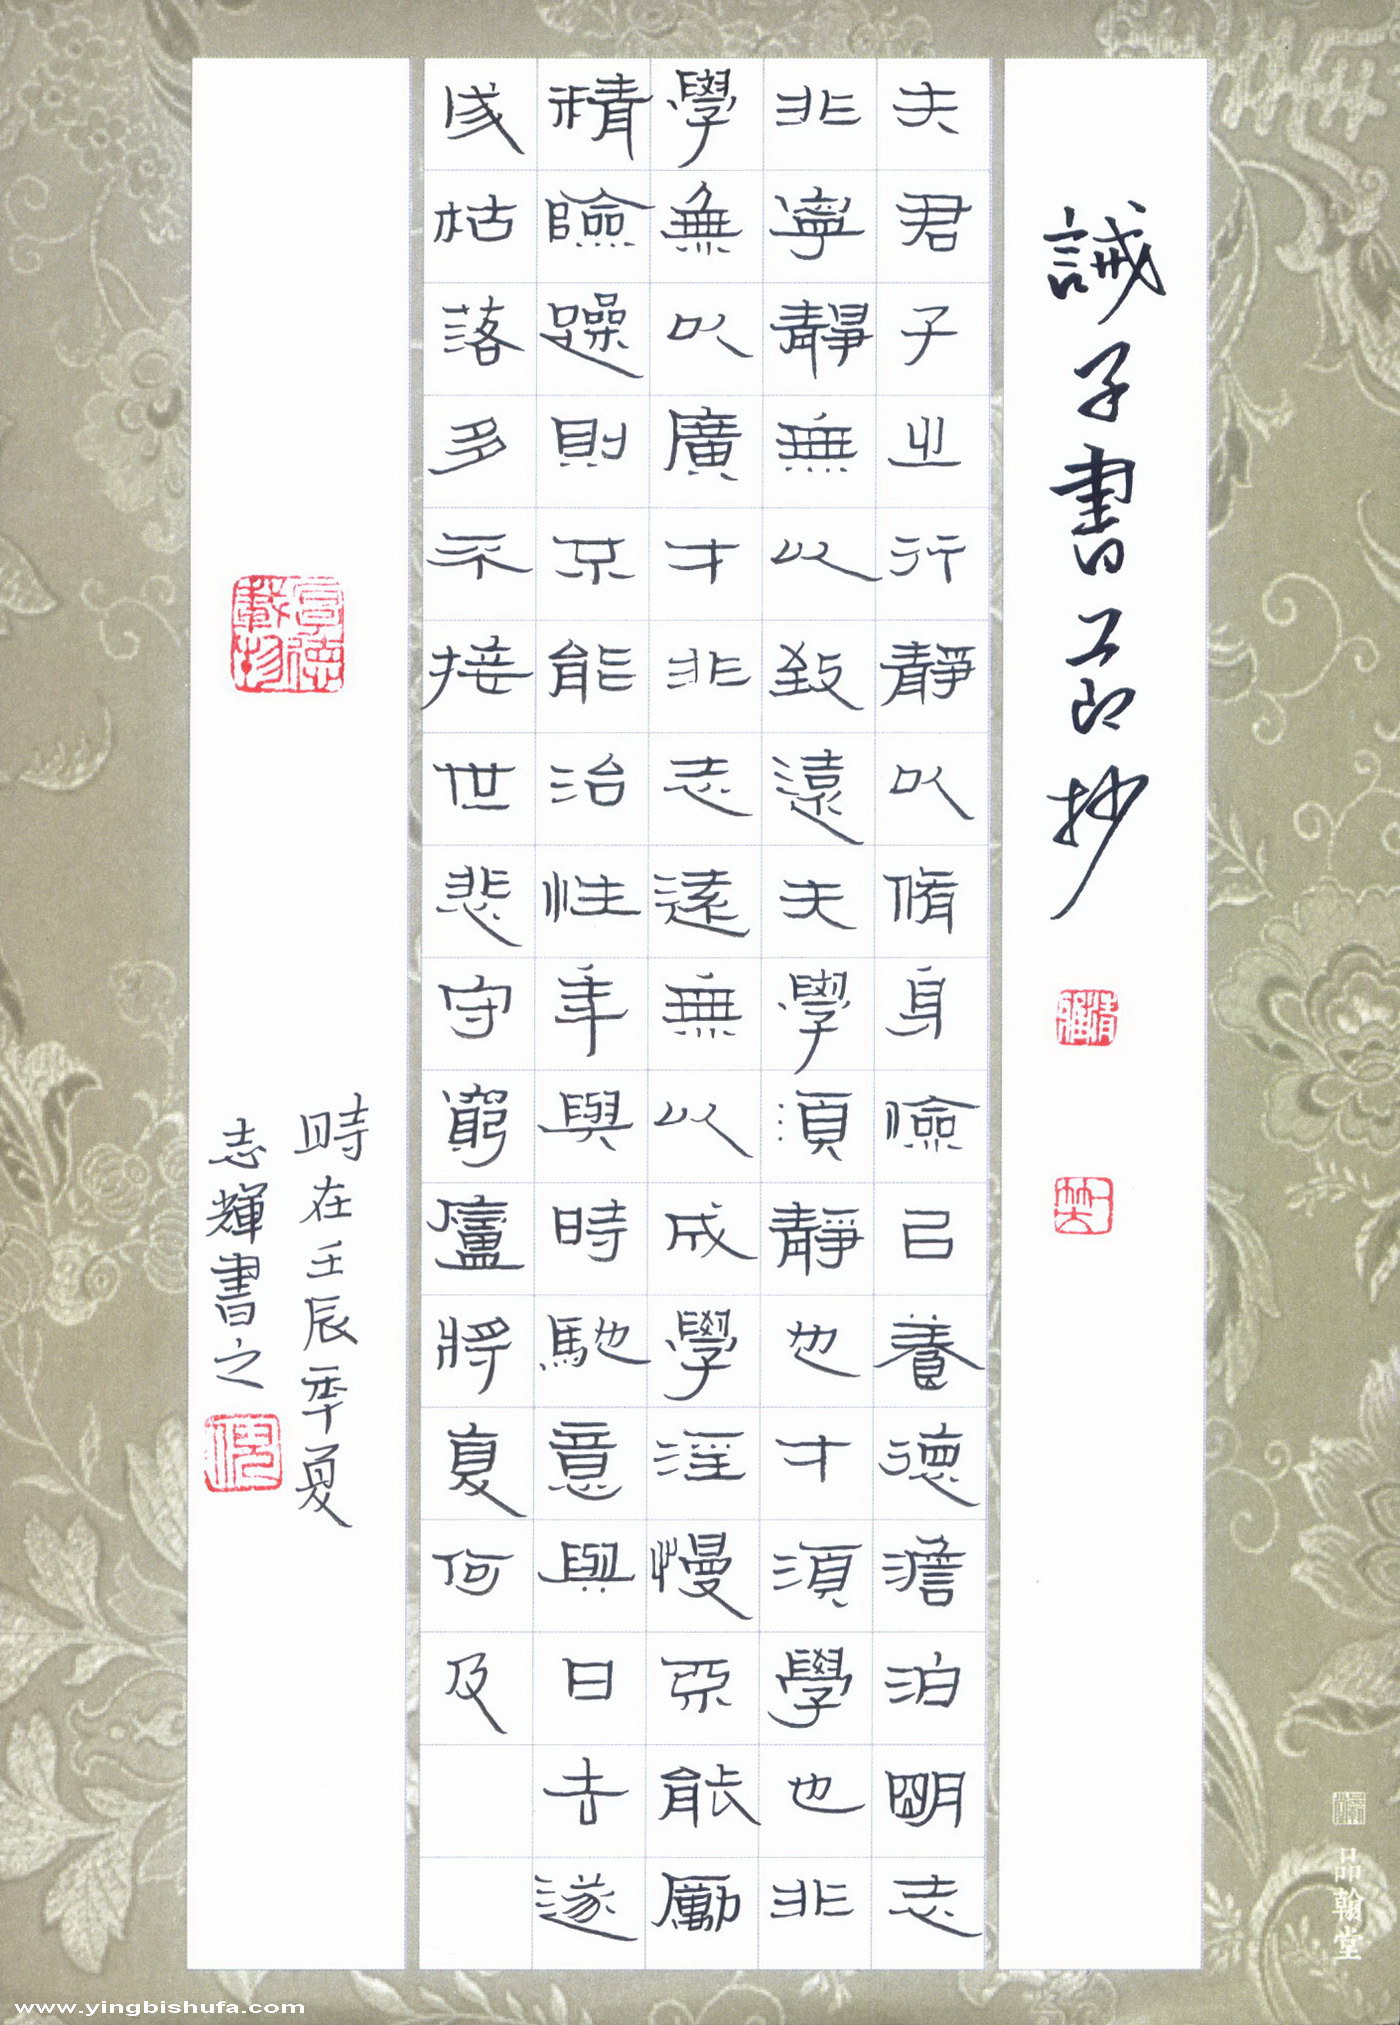 誡子書節抄
夫君子之行靜以脩身儉己養德澹泊朙志
非寧靜無以致遠夫學須靜也才須學也非
學無以廣才非志遠無以成學淫慢不能勵
精險躁則不能治性年與時馳意與日去遂
成枯落多不接世悲守窮廬將复何及
時在壬辰年夏
志輝書之
厚德載物
清雅
品翰堂
www.yingbishufa.com